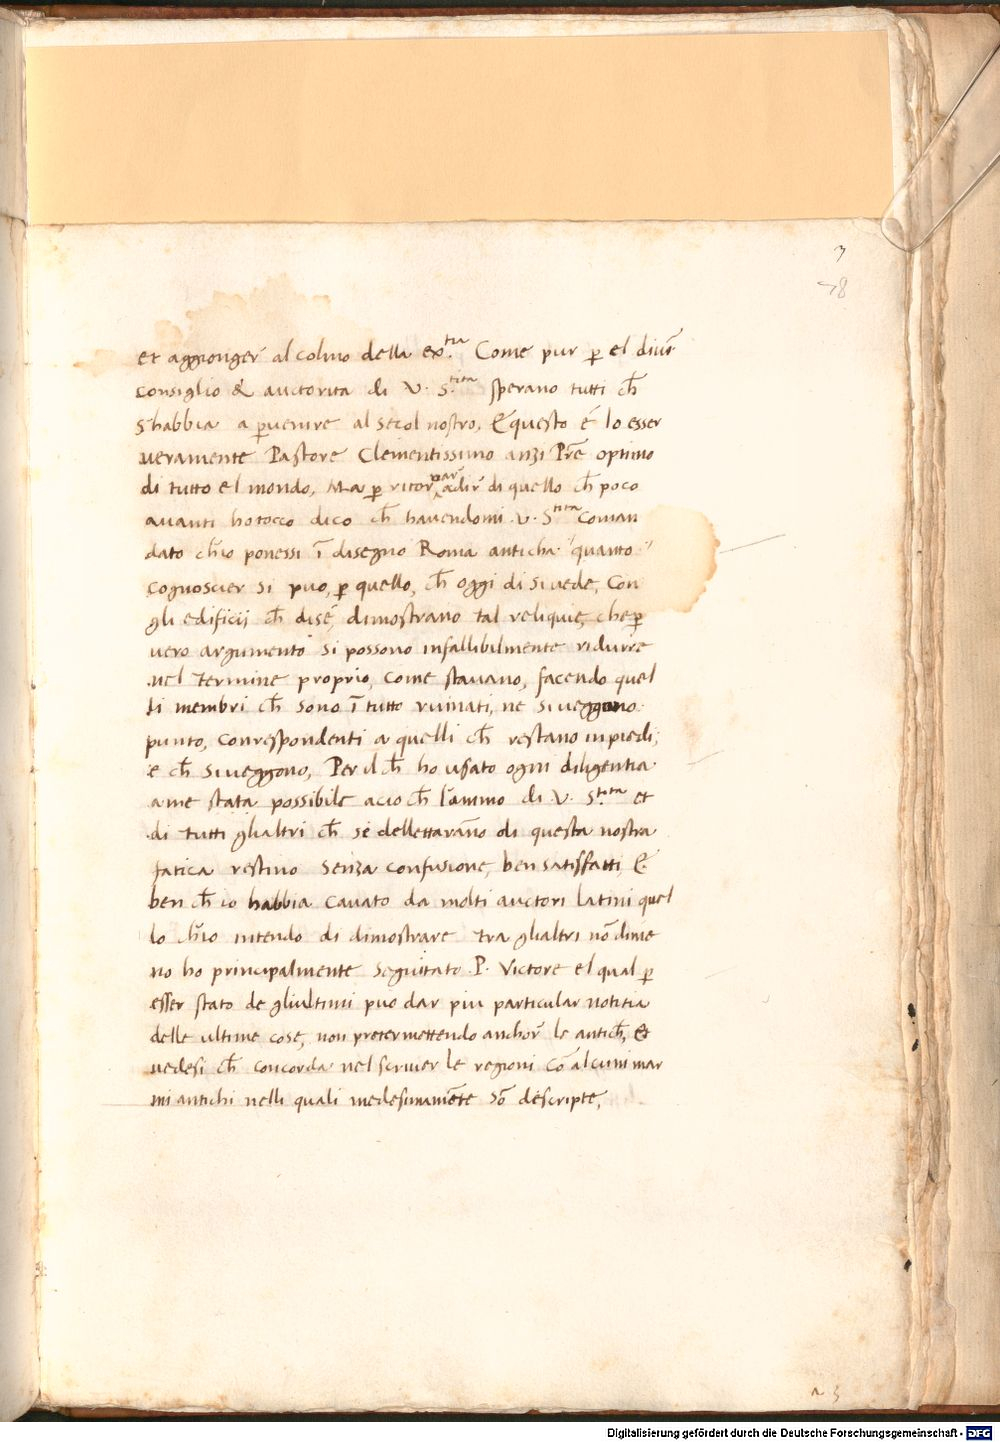 3
78
et aggionger̃ al colmo della ex.tia Come pur ꝑ el diuĩ
consiglio & auctorita di V. S.tita sperano tutti ch̃
s'habbia a ꝑuenire al secol nostro, E questo é lo esser
ueramente Pastore Clementissimo anzi Pr̃e optimo
di tutto el mondo, Ma ꝑ ritor par̃ adir̃ di quello ch̃ poco
auanti ho tocco dico ch̃ hauendomi .V. S.tita coman
dato ch'io ponessi ĩ disegno Roma anticha quanto
cognoscier si puo, ꝑ quello, ch̃ oggi di si uede, Con
gli edificij ch̃ di sé, dimostrano tal reliquie, che ꝑ
uero argumento si possono infallibilmente ridurre
nel termine proprio, come stauano, facendo quel
li membri ch̃ sono ĩ tutto ruinati, ne si ueggono
punto, correspondenti a quelli ch̃ restano in piedi,
e ch̃ si ueggono, Per il ch̃ ho usato ogni diligentia
a me stata possibile acio ch̃ l'animo di V. S.tita et
di tutti gli altri ch̃ se dellettarañ̃o di questa nostra
fatica restino senza confusione, ben satisfatti, E
ben ch̃ io habbia cauato da molti auctori latini quel
lo ch'io intendo di dimostrare tra gli altri nõ dime
no ho principalmente seguitato .P. Victore el qual ꝑ
esser stato de gli ultimi puo dar piu particular notitia
delle ultime cose, non pretermettendo anchor̃ le antich̃, et
uedesi ch̃ concorda nel scriuer le regioni cõ alcuni mar
mi antichi nelli quali medesimamẽte sõ descripte,
Digitalisierung gefördert durch die Deutsche Forschungsgemeinschaft - DFG